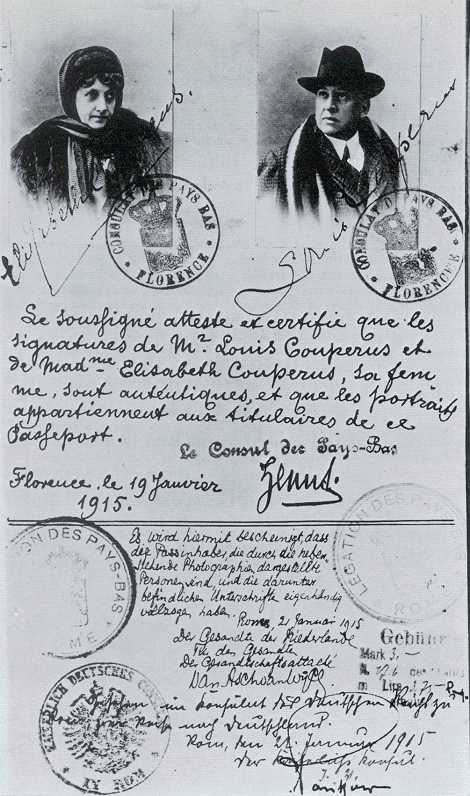 Elisabeth Couperus.
Louis Couperus
CONSULAT DES PAYS BAS
* FLORENCE *
CONSULAT DES PAYS BAS
* FLORENCE *
Le soussigné atteste et certifie que les
signatures de Mr. Louis Couperus et
de Madme Elisabeth Couperus, sa fem
me, sont autéutiques, et que les portraits
appartiennent aux titulaires de ce
Passeport.
Le Consul des Pays-Bas
Florence, le 19 Janvier
1915.
LEGATION DES PAYS-BAS
ROME
LEGATION DES PAYS-BAS
ROME
Es wird hiermit bescheinigt, dass
die Passinhaber, die durch die neben
stehende Photographien dargestellte
Personen sind, und die darunter
befindlichen Unterschriften eigenhändig
vollzogen haben.
Rome, 21 Januar 1915
Der Gesandte der Niederlande
Für den Gesandte
Der Gesandtschaftsattaché
Gebühr
Mark 3.-
KAISERLICH DEUTSCHES
ROM
Gesehen, im Konsulat des Deutschen Reichs zu
Rom, zur Reise nach Deutschland.
Rom, den 22. Januar 1915
Der Konsul.